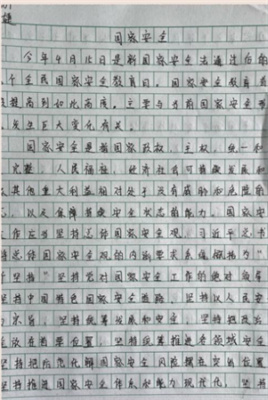 国家安全
今年4月15日是新国家安全法通过后的
个全民国家安全教育日。国家安全教育
提高到如此高度。主要与当前国家安全形
发生巨大变化有关。
国家安全是指国家政权、主权、统一和
完整、人民福祉、经济社会可持续发展和
其他重大利益相对处于没有危险和
以及保障持续安全状态的能力。国家安
作应当坚持总体国家安全观。习近平总书
总体国家安全观的内涵要求系统概括为"
个坚持"坚持党对国家安全工作的绝对领导
坚持中国特色国家安全道路，坚持以人民安
为宗旨，坚持统筹发展和安全，坚持把政治
放在首要位置，坚持统筹推进各领域安全
坚持把防范化解国家安全风险摆在突出位置
坚持推进国家安全体系和能力现代化，坚持